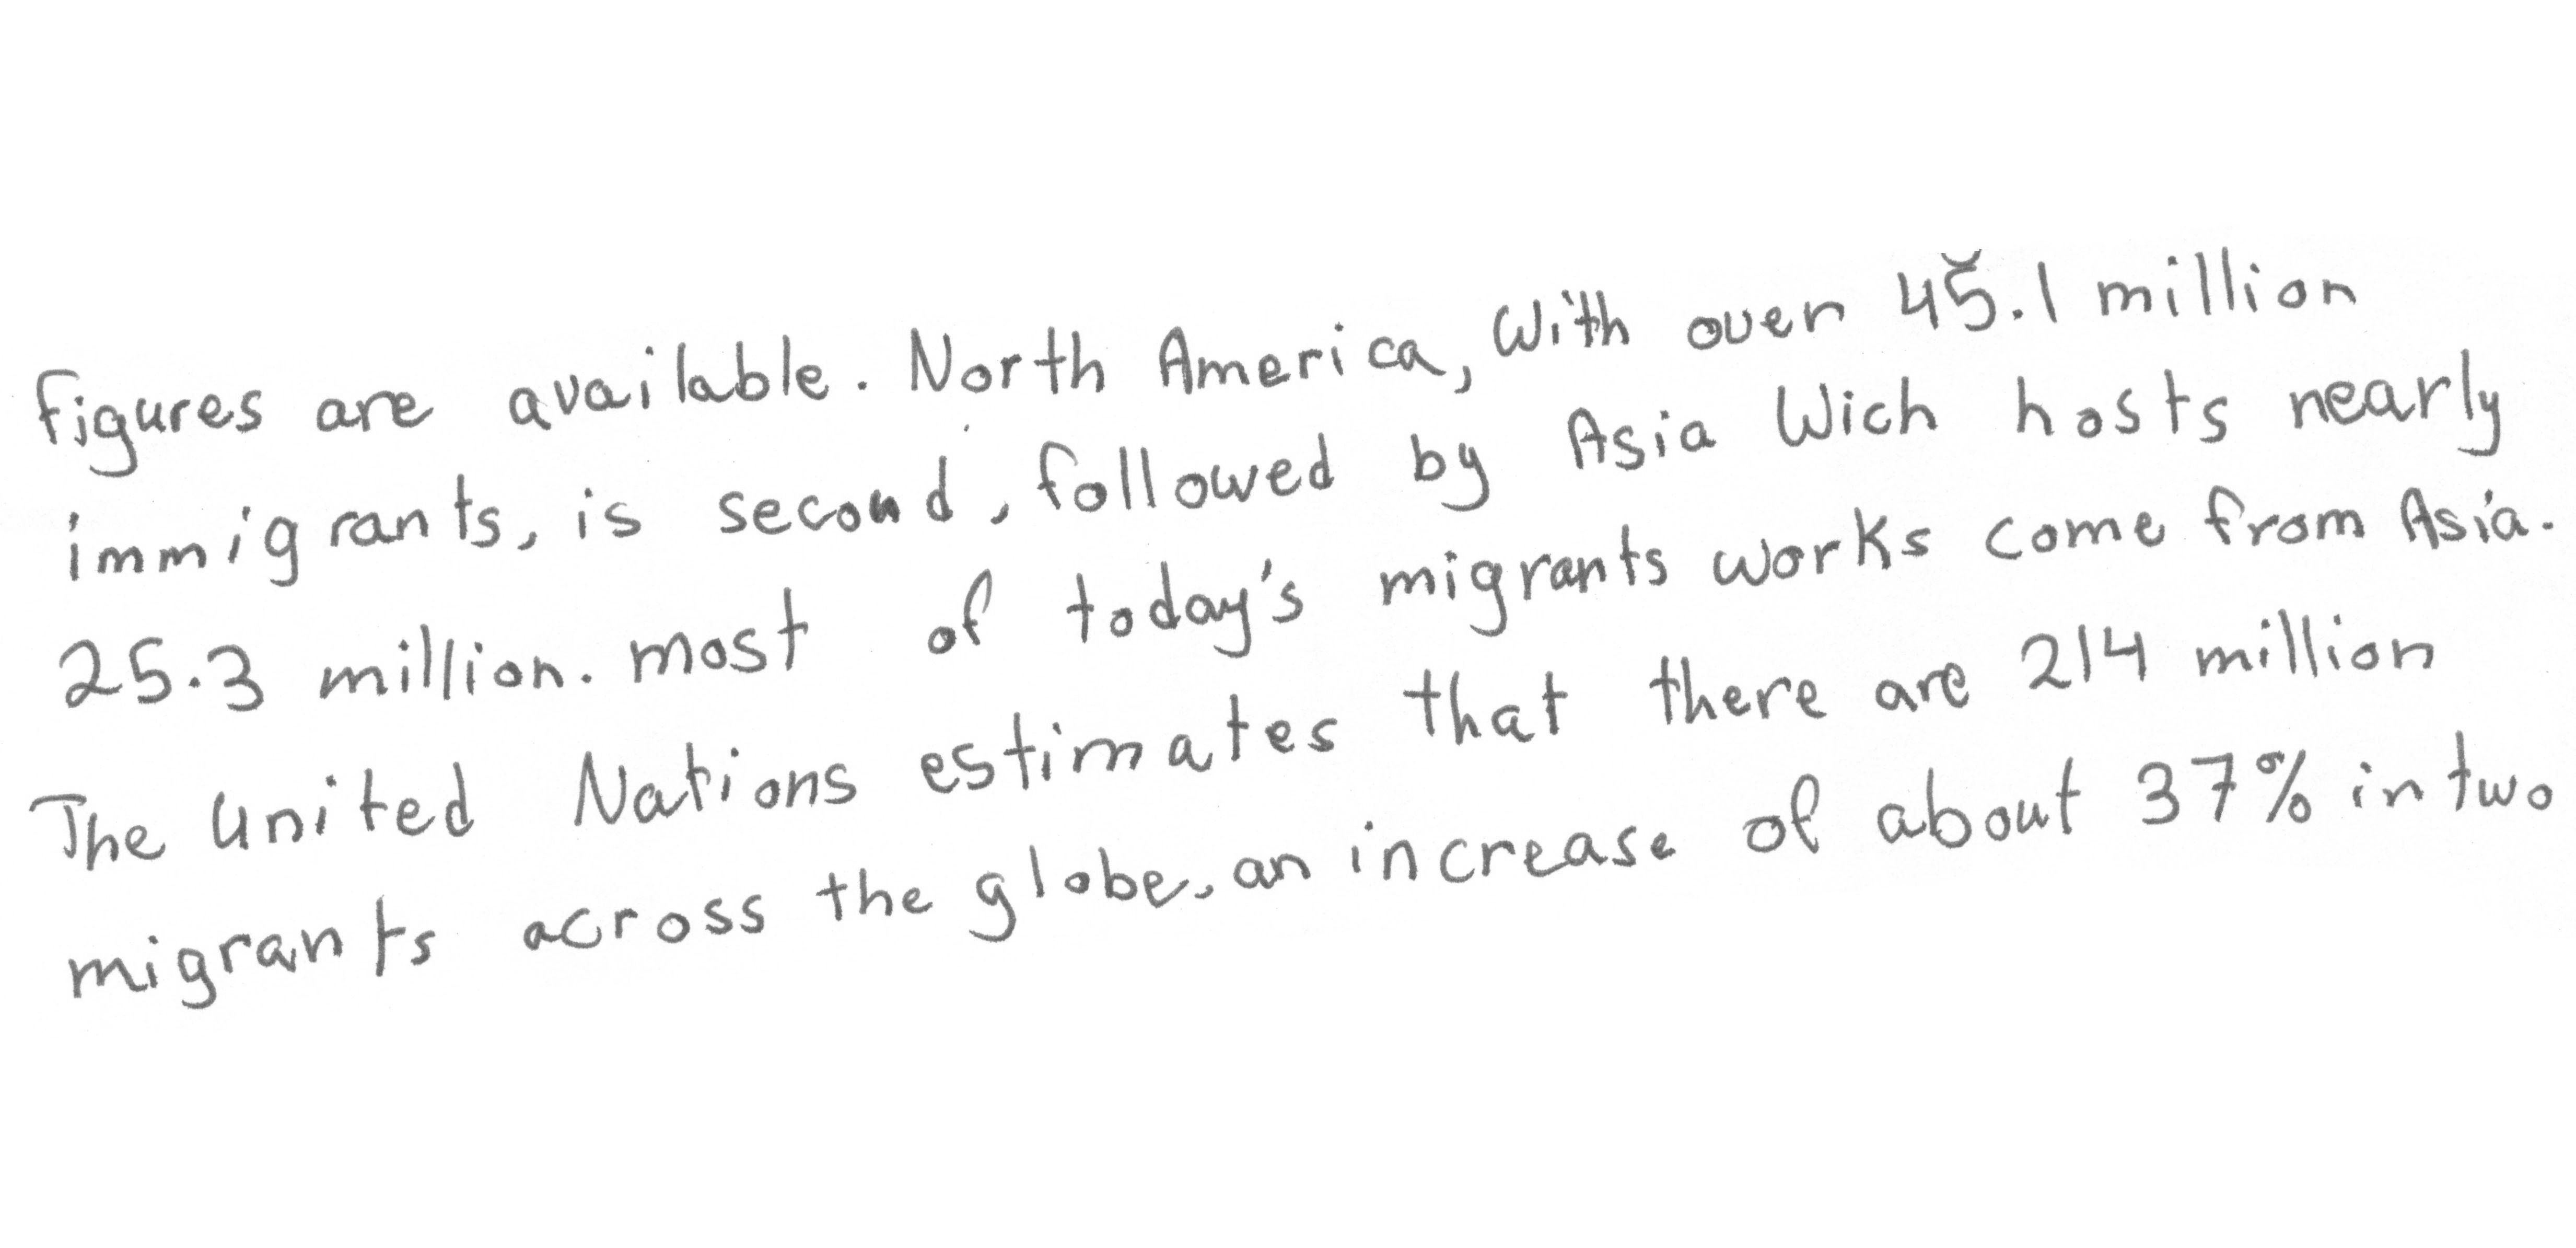 figures are available. North America, With over 45.1 million
immigrants, is second, followed by Asia Wich hosts nearly
25.3 million. most of today's migrants works come from Asia.
The United Nations estimates that there are 214 million
migrants across the globe, an increase of about 37% in two